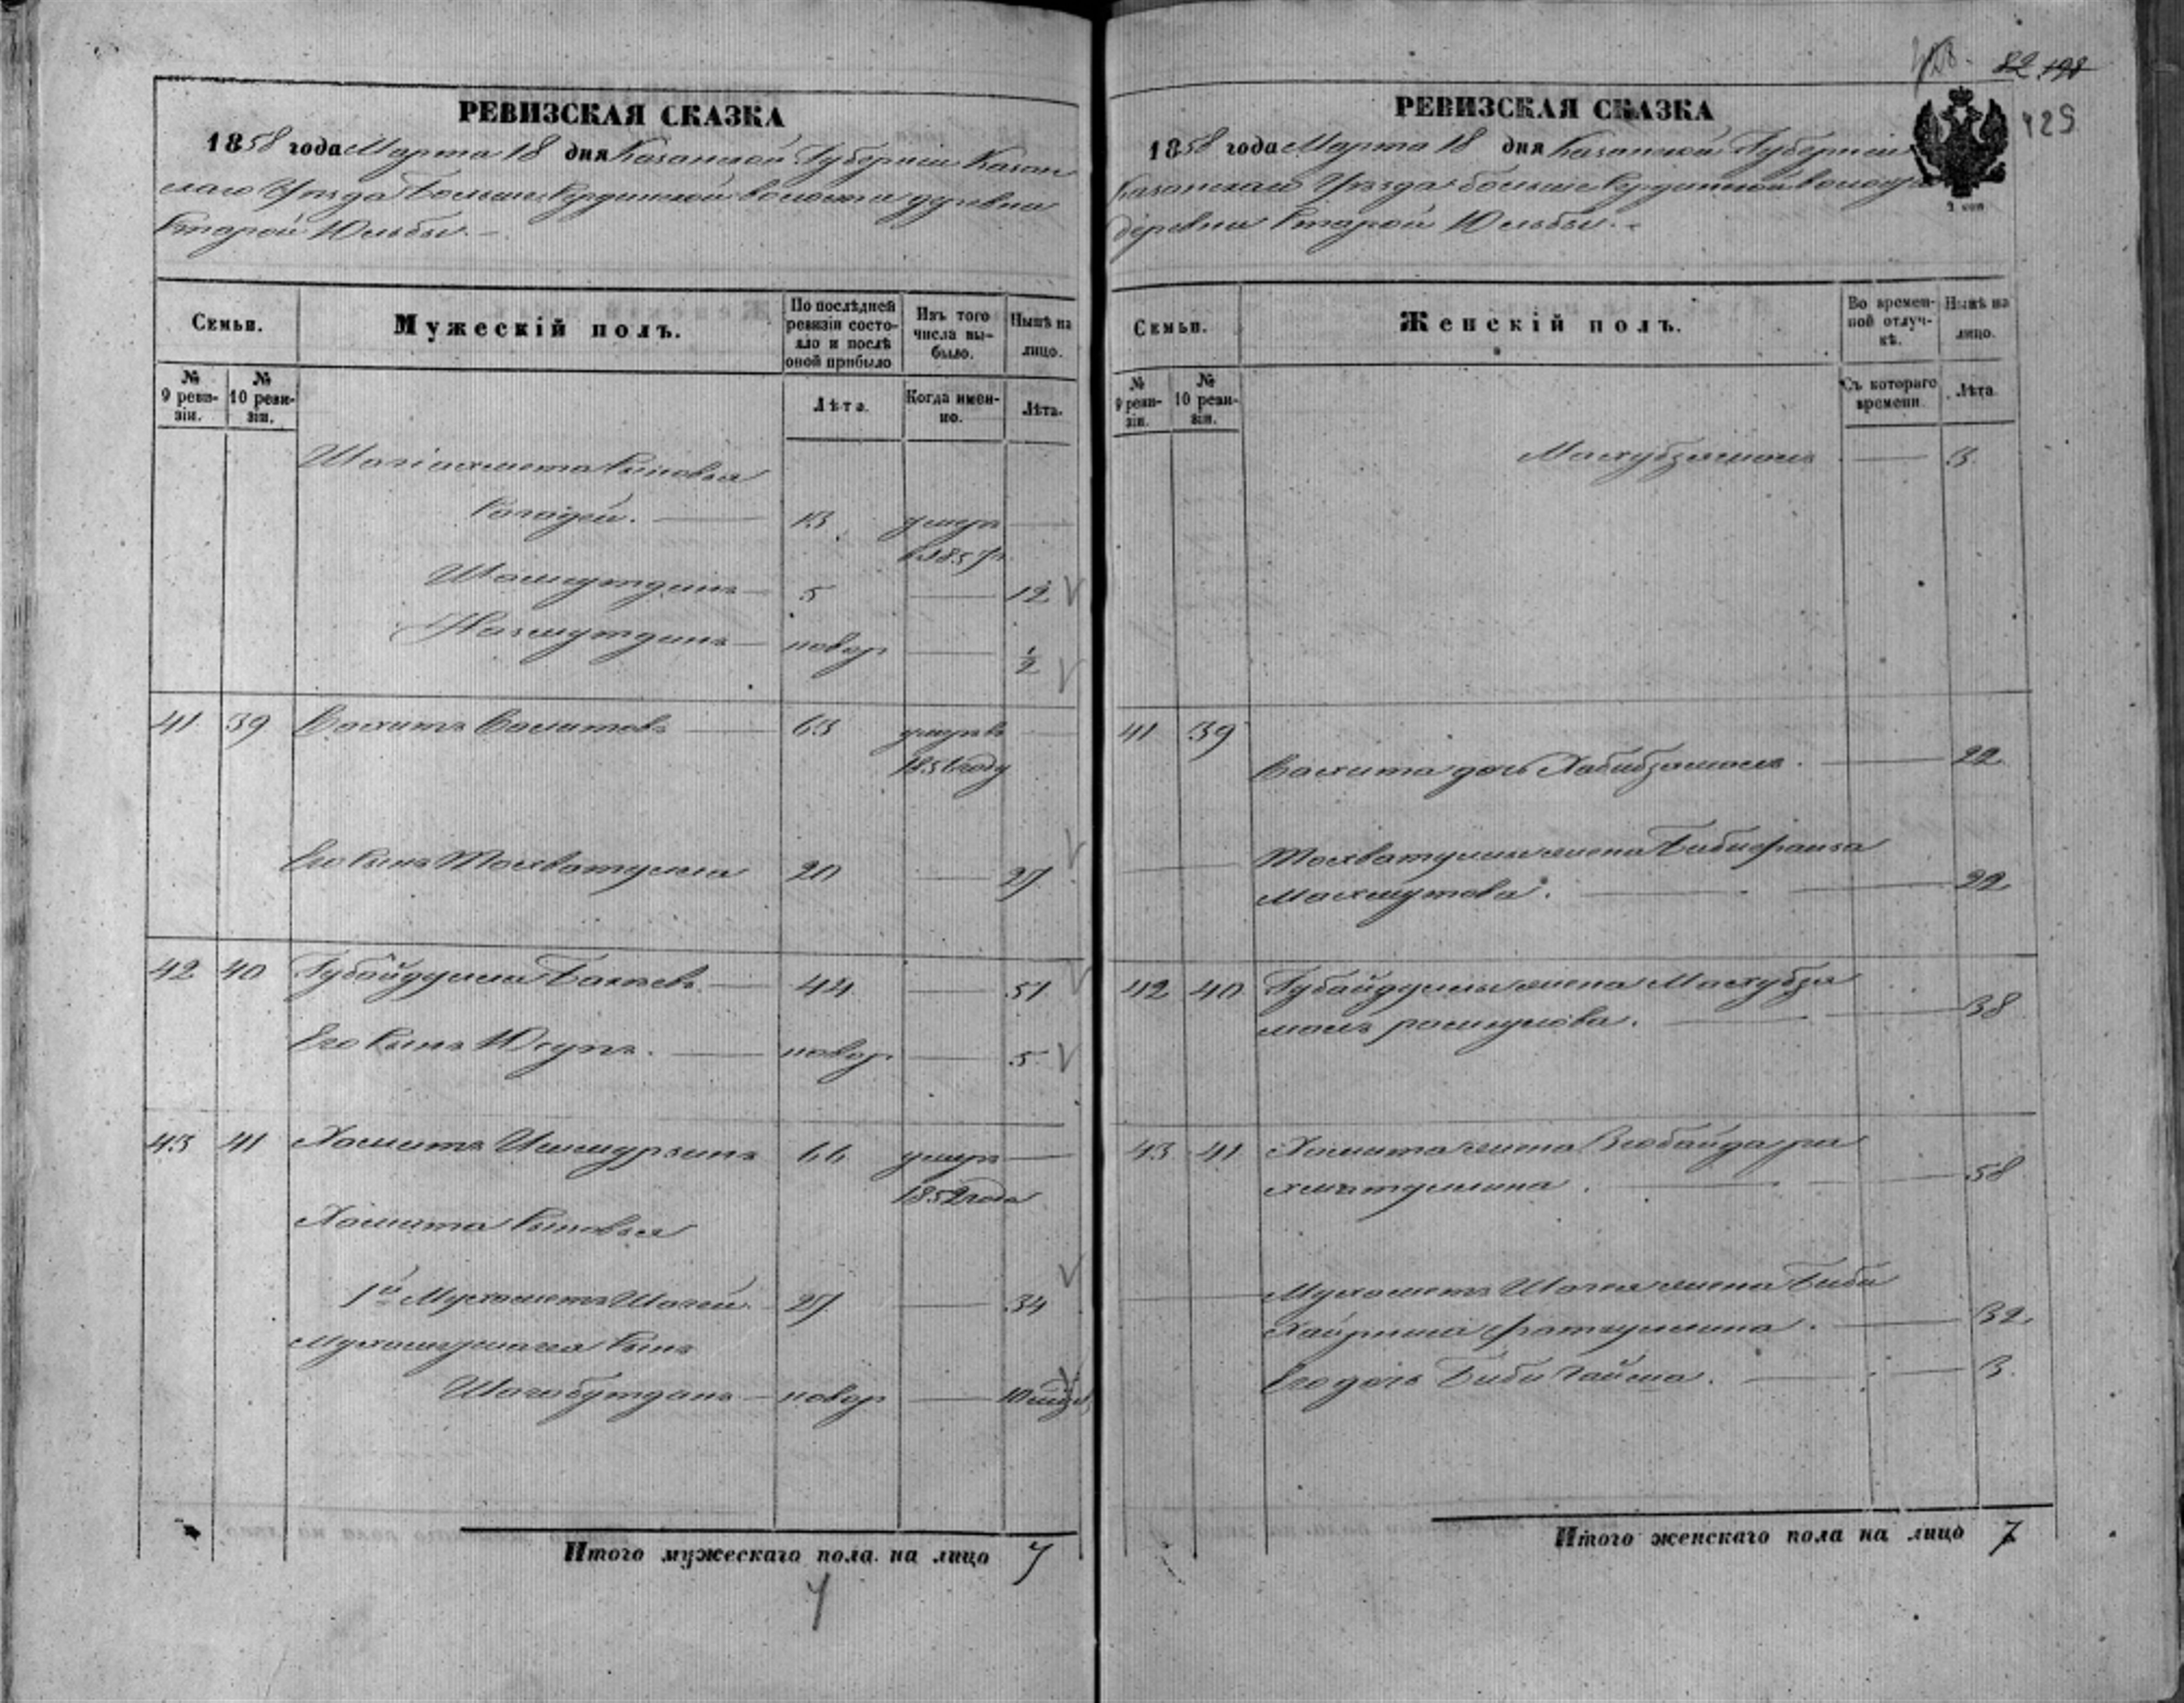 РЕВИЗСКАЯ СКАЗКА
1858 года Марта 18 дня Казанской Губернiи Казан
скаго Уѣзда Больше волости деревни
Старой Юльбы.
Семьи.
Мужескiй полъ.
По послѣдней ревизiи состояло и послѣ оной прибыло
Изъ того числа выбыло.
Нынѣ на лицо.
№ 9 ревизiи.
№ 10 ревизiи.
Лѣта.
Когда именно.
Лѣта.
Шагiахмета сыновья
13 умеръ
в 1857
Шамсутдинъ 5 — 12
Назмутдинъ новор — ½
41 39 Вахитъ Валитовъ 63 умеръ въ
1851 году
Его сынъ Тохватулла 20 — 27
42 40 Губайдулла Бакѣевъ 44 — 51
Его сынъ Юсупъ. новор — 5
43 41 Хамитъ Ишмурзинъ 66 умеръ
1852 года
Хамита сыновья
1й Мухаметъ Шагей 27 — 34
сынъ
Шагабутдинъ новор — 10
Итого мужескаго пола на лицо 7
7
РЕВИЗСКАЯ СКАЗКА
82 198
125
1858 года Марта 18 дня Казанской Губернiи
Казанскаго Уѣзда больше волости
деревни Старой Юльбы.
Семьи.
Женскiй полъ.
Во временной отлучкѣ.
Нынѣ на лицо.
№ 9 ревизiи.
№ 10 ревизiи.
Съ котораго времени.
Лѣта.
Махубзямалъ — 3
41 39
Вахита дочь Хабибзямалъ. — 22
Тохватуллы жена Бибифаиза
Махмутова. — 22
42 40 Губайдуллы жена Махубзя
малъ — 38
43 41 Хамита жена Зюбайда ра
хматуллина. — 58
Мухаметъ Шагея жена Биби
Хайриша фатхуллина. — 32
Его дочь Биби Гайша. — 3
Итого женскаго пола на лицо 7